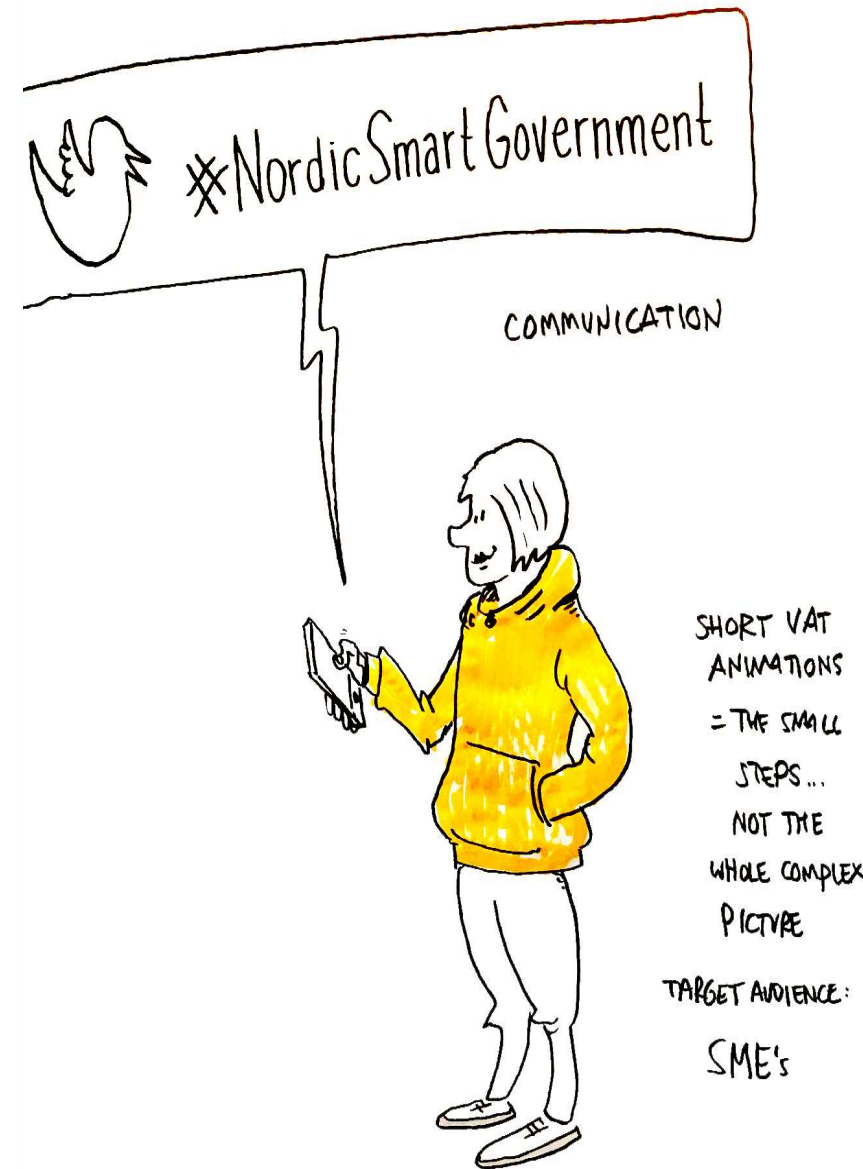 #NordicSmartGovernment
COMMUNICATION
SHORT VAT
ANIMATIONS
= THE SMALL
STEPS...
NOT THE
WHOLE COMPLEX
PICTURE
TARGET AUDIENCE:
SME's